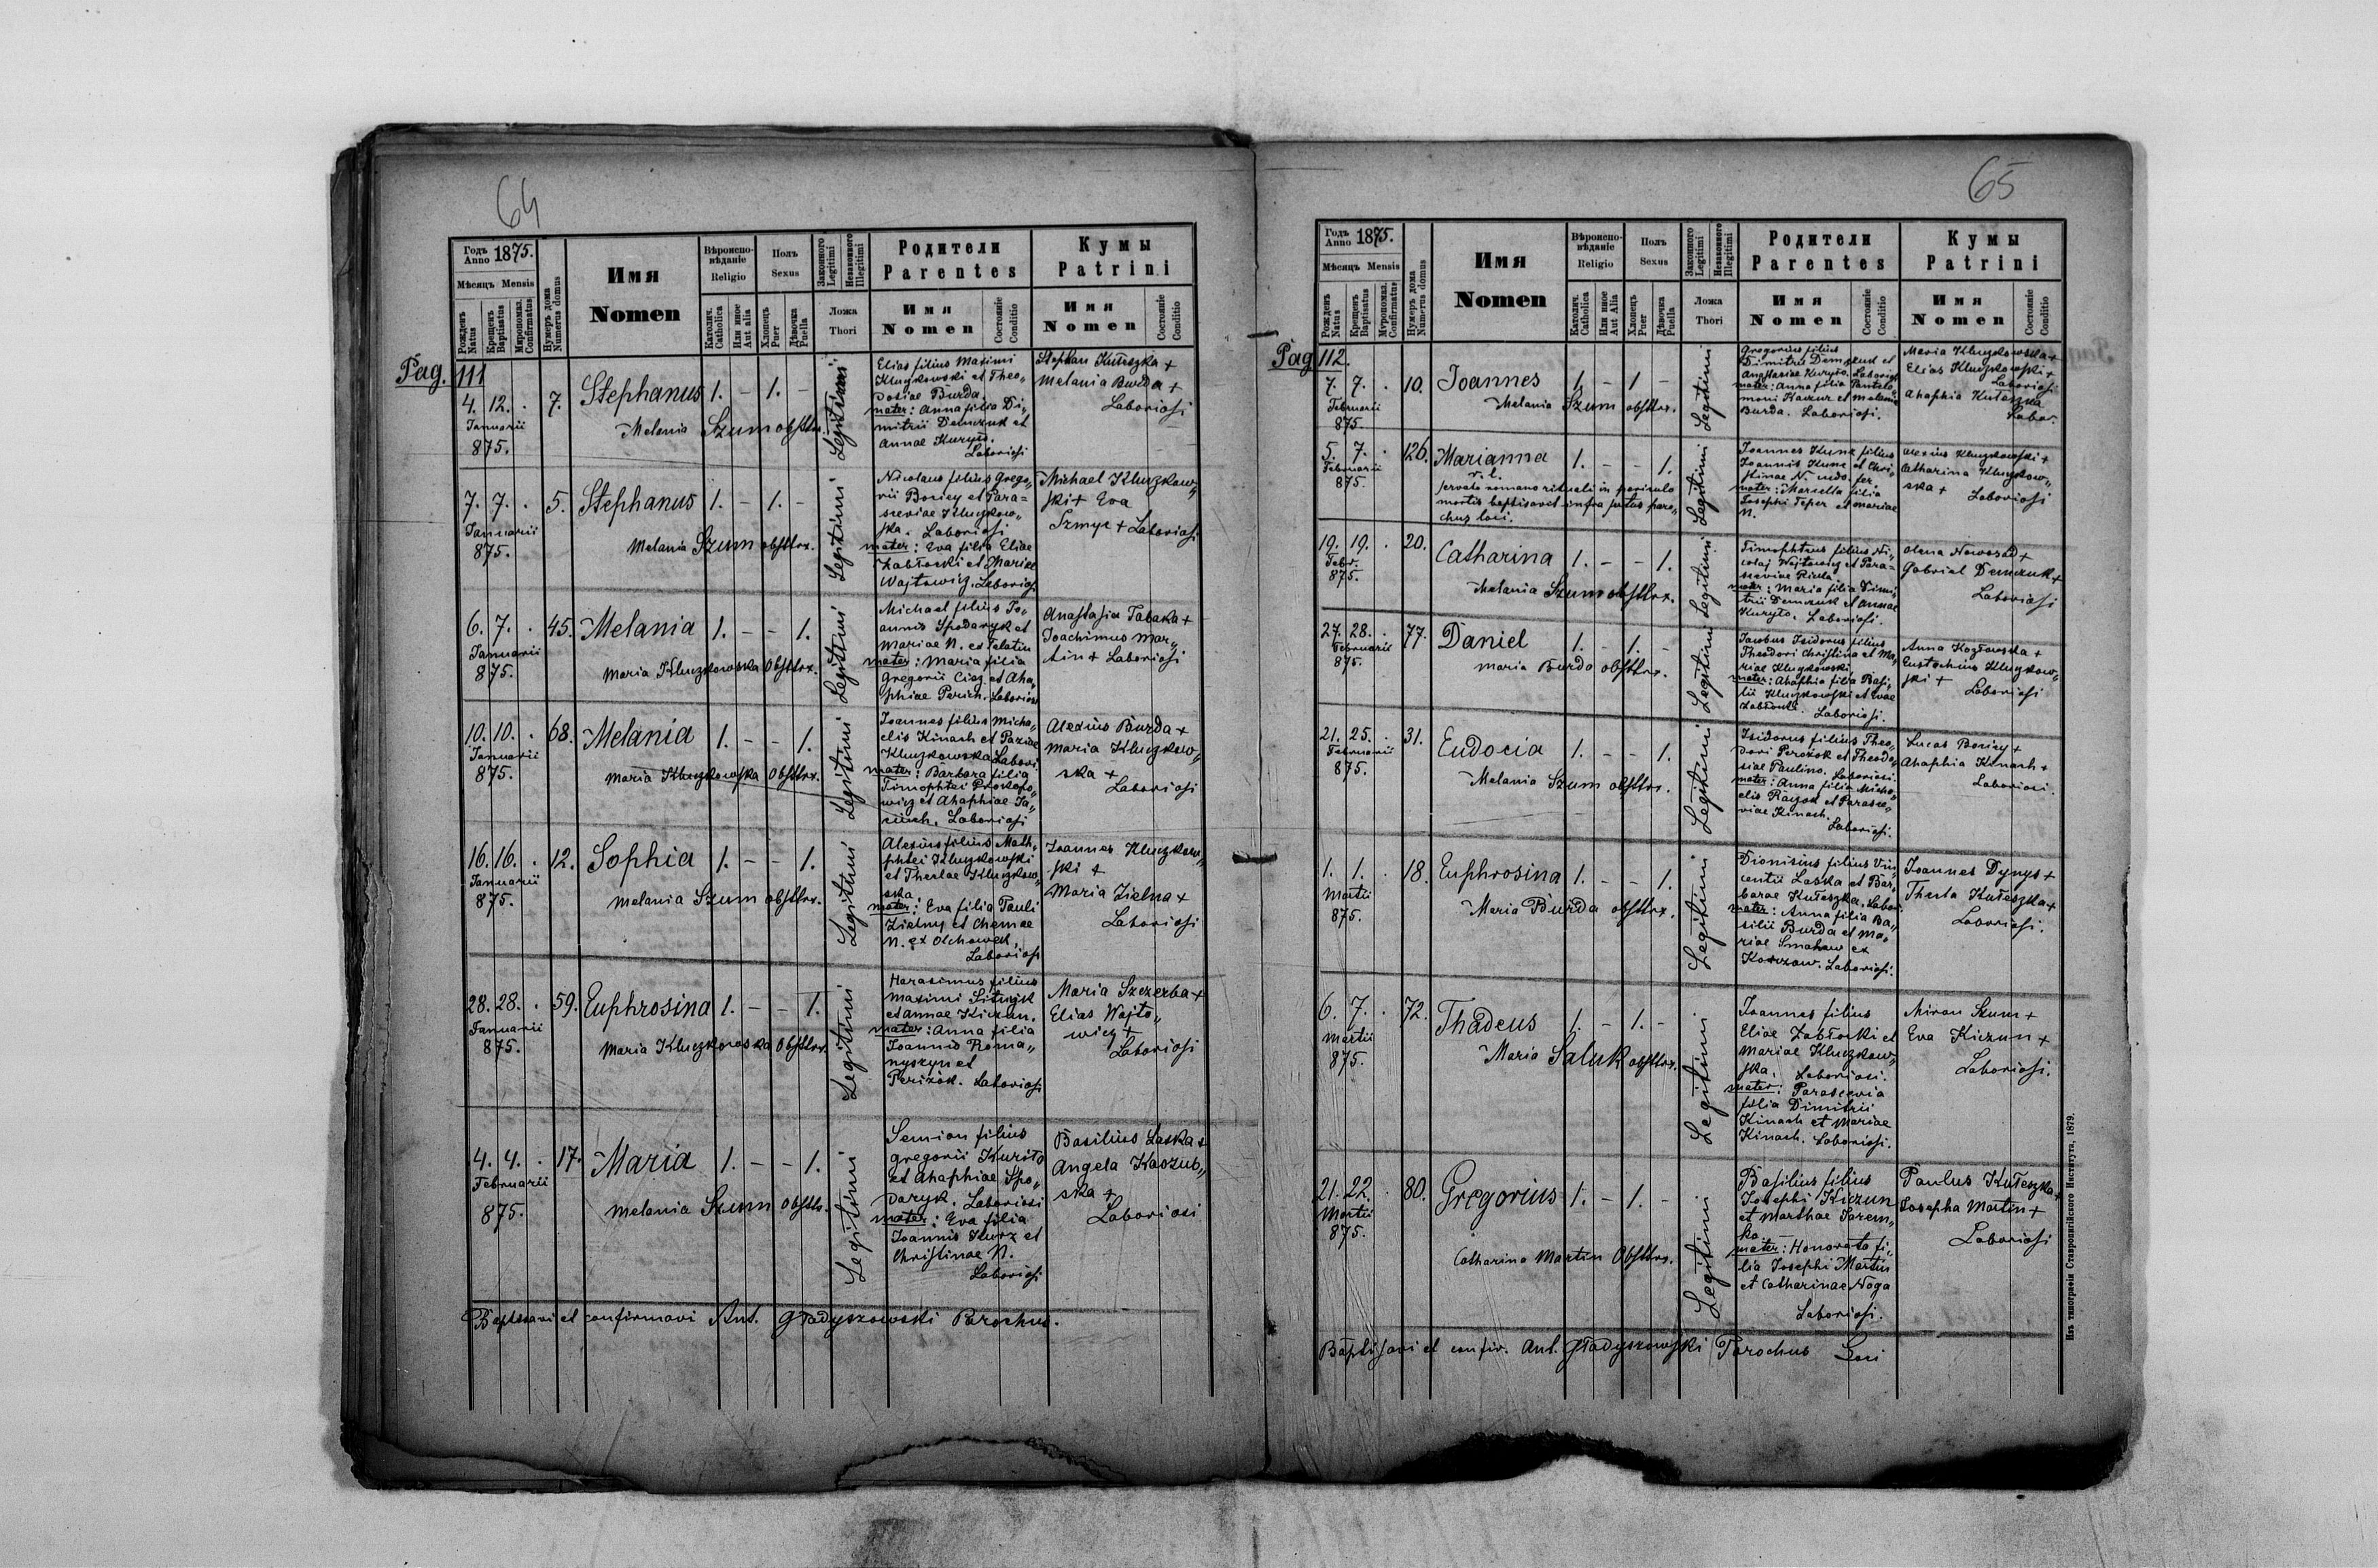 64
Годъ Anno 1875.
Мѣсяцъ Mensis
Рожденъ Natus
Крещенъ Baptisatus
Мѵропомаз. Confirmatus
Нумеръ дома Numerus domus
Имя
Nomen
Вѣроиспо-вѣданіе
Religio
Католич. Catholica
Или иное Aut alia
Полъ
Sexus
Хлопець Puer
Дѣвочка Puella
Законного Legitimi
Незаконного Illegitimi
Ложа
Thori
Родители
Parentes
Имя
Nomen
Состояніе Conditio
Кумы
Patrini
Имя
Nomen
Состояніе Conditio
Pag. 111
4. 12. . 7. Stephanus 1. - 1. - Legitimi
Januarii
875.
Melania Szum obsttrx.
Elias filius Maximi
Kluczkowski et Theo„
dosiae Burda.
mater: Anna filia Di„
mitrii Demczuk et
Annae Kuryło.
Laboriosi
Stephan Kułeszka +
Melania Burda +
Laboriosi
7. 7. . 5. Stephanus 1. - 1. - Legitimi
Januarii
875.
Melania Szum obsttrx.
Nicolaus filius Grego„
rii Boniey et Para=
sceviae Kluczkow„
ska. Laboriosi
mater: Eva filia Eliae
Zabłocki et Mariae
Wojtowicz. Laboriosi
Michael Kluczkow„
ski + Eva
Szmyr + Laboriosi
6. 7. . 45. Melania 1. - - 1. Legitimi
Januarii
875.
Maria Kluczkowska Obsttrx.
Michael filius Jo„
annis Spodaryk et
Mariae N. ex Telatin
mater: Maria filia
Gregorii Ciez et Aha„
phiae Perich. Laboriosi
Anastasia Tabaka +
Joachimus Mar„
tin + Laboriosi
10. 10. . 68. Melania 1. - - 1. Legitimi
Januarii
875.
Maria Kluczkowska Obsttrx.
Joannes filius Micha„
elis Kinach et Paziae
Kluczkowska Labori
mater: Barbara filia
Timophtei Prokopo„
wicz et Ahaphiae
Laboriosi
Alexius Burda +
Maria Kluczkow„
ska +
Laboriosi
16. 16. . 12. Sophia 1. - - 1. Legitimi
Januarii
875.
Melania Szum obsttrx.
Alexius filius Math„
phtei Kluczkowski
et Theclae Kluczkow„
ska.
mater: Eva filia Pauli
Zielny et Chemae
N. ex Olchowek.
Laboriosi
Joannes Kluczkow„
ski +
Maria Zielna +
Laboriosi
28. 28. . 59. Euphrosina 1. - - 1. Legitimi
Januarii
875.
Maria Kluczkowska Obsttrx.
Harasimus filius
Maximi Sitnyk
et Annae Kiczun.
mater: Anna filia
Joannis Roma„
nyszyn et
Perizok. Laboriosi
Maria Szczerba +
Elias Wojto„
wicz +
Laboriosi
4. 4. . 17. Maria 1. - - 1. Legitimi
Februarii
875.
Melania Szum Obsttrx.
Semion filius
Gregorii Kuriło
et Ahaphiae Spo„
daryk. Laboriosi
mater: Eva filia
Joannis Kurz et
Christinae N.
Laboriosi
Basilius Laska +
Angela Kaszub„
ska +
Laboriosi
Baptisavi et confirmavi Ant. Gładyszowski Parochus.
65
Годъ Anno 1875.
Мѣсяцъ Mensis
Рожденъ Natus
Крещенъ Baptisatus
Мѵропомаз. Confirmatus
Нумеръ дома Numerus domus
Имя
Nomen
Вѣроиспо-вѣданіе
Religio
Католич. Catholica
Или иное Aut Alia
Полъ
Sexus
Хлопець Puer
Дѣвочка Puella
Законного Legitimi
Незаконного Illegitimi
Ложа
Thori
Родители
Parentes
Имя
Nomen
Состояніе Conditio
Кумы
Patrini
Имя
Nomen
Состояніе Conditio
Pag 112.
7. 7. . 10. Joannes 1. - 1 - Legitimi
Februarii
875.
Melania Szum obsttrx.
Gregorius filius
Dimitrii Demczuk et
Anastasiae Kuryło. Laboriosi
mater: Anna filia Pantele„
moni Kaczur et Melaniae
Burda. Laboriosi.
Maria Kluczkowska +
Elias Kluczkowski +
Laboriosi
Ahaphia Kułeszka
Labor.
5. 7. . 126. Marianna 1. - - 1. Legitimi
Februarii
875.
r. l.
servato romano rituali in periculo
mortis baptisavit infra scriptus paro„
chus loci.
Joannes Kunc filius
Joannis Kunc et Chri„
stinae N.
mater: Mariella filia
Josephi Teper et Mariae
N.
Alexius Kluczkowski +
Catharina Kluczkow„
ska + Laboriosi
19. 19. . 20. Catharina 1. - - 1. Legitimi
Febr.
875.
Melania Szum obsttrx.
Timophteus filius Ni„
colaj Wojtowicz et Para=
sceviae
mater: Maria filia Dimi„
trii Demczuk et Annae
Kuryło. Laboriosi.
Olena Nowosad +
Gabriel Demczuk +
Laboriosi
27. 28. . 77. Daniel 1. - 1. - Legitimi
Februarii
875.
Maria Burda obsttrx.
Jacobus Isidorus filius
Theodori Christina et Ma„
riae Kluczkowski.
mater: Ahaphia filia Basi„
lii Kluczkowski et Evae
Zabłocki. Laboriosi.
Anna Kozłowska +
Eustachius Kluczkow„
ski +
Laboriosi
21. 25. . 31. Eudocia 1. - - 1. Legitimi
Februarii
875.
Melania Szum obsttrx.
Isidorus filius Theo„
dori Perozok et Theodo„
siae Paulino. Laboriosi.
mater: Anna filia Micha„
elis et Parasce„
viae Kinach.
Laboriosi.
Lucas Boniey +
Ahaphia Kinach +
Laboriosi.
1. 1. . 18. Euphrosina 1. - - 1. Legitimi
Martii
875.
Maria Burda obsttrx.
Dionisius filius Vin„
centii Laska et Bar„
barae Kułeszka. Labor.
mater: Anna filia Ba„
silii Burda et Ma„
riae ex
Korzow. Laboriosi.
Joannes Dynys +
Thecla Kułeszka +
Laboriosi.
6. 7. . 72. Thadeus 1. - 1. - Legitimi
Martii
875.
Maria Saluk obsttrx.
Joannes filius
Eliae Zabłocki et
Mariae Kluczkow„
ska. Laboriosi.
mater: Parascevia
filia Dimitrii
Kinach et Mariae
Kinach. Laboriosi.
Miron Szum +
Eva Kiczun +
Laboriosi.
21. 22. . 80. Gregorius 1. - 1. - Legitimi
Martii
875.
Catharina Martin Obsttrx.
Basilius filius
Josephi Kiczun
et Marthae Sarem„
ko.
mater: Honorata fi„
lia Josephi Martin
et Catharinae Noga
Laboriosi.
Paulus Kułeszka +
Josepha Martin +
Laboriosi
Baptisavi et confir. Ant. Gładyszowski Parochus Loci
Изъ типографіи Ставропигійского Института, 1879.